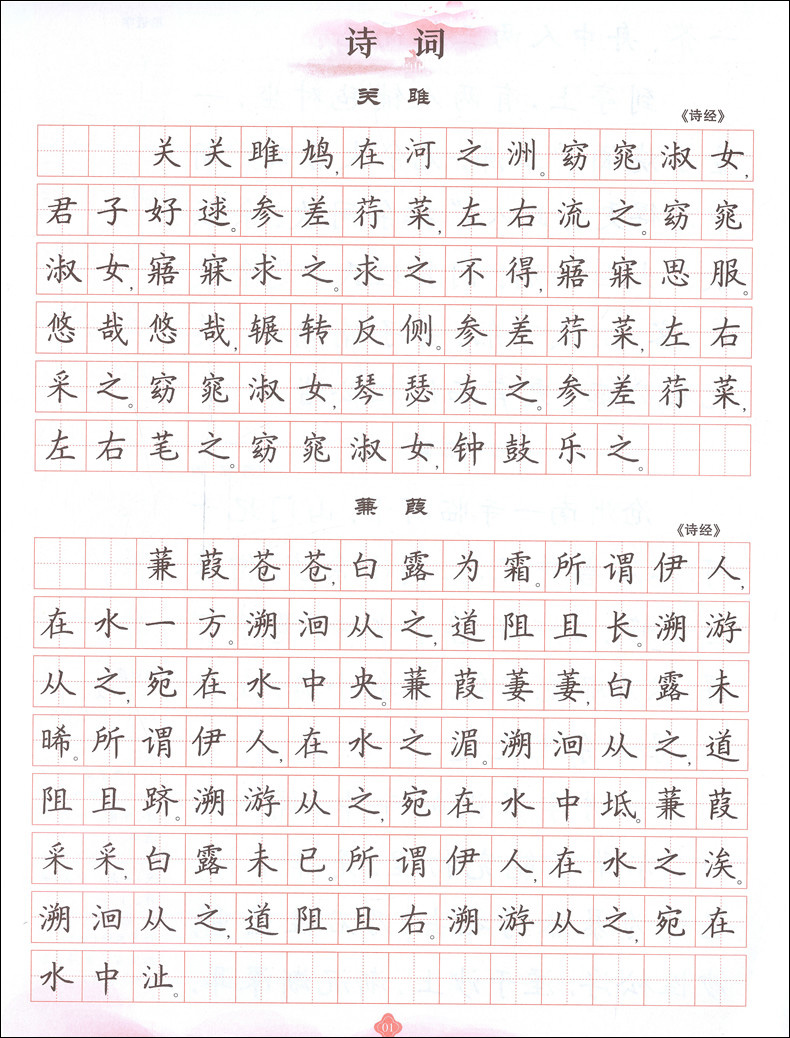 诗 词
关 雎
《诗经》
关关雎鸠,在河之洲。窈窕淑女,
君子好逑。参差荇菜,左右流之。窈窕
淑女,寤寐求之。求之不得,寤寐思服。
悠哉悠哉,辗转反侧。参差荇菜,左右
采之。窈窕淑女,琴瑟友之。参差荇菜,
左右芼之。窈窕淑女,钟鼓乐之。
蒹 葭
《诗经》
蒹葭苍苍,白露为霜。所谓伊人,
在水一方。溯洄从之,道阻且长。溯游
从之,宛在水中央。蒹葭萋萋,白露未
晞。所谓伊人,在水之湄。溯洄从之,道
阻且跻。溯游从之,宛在水中坻。蒹葭
采采,白露未已。所谓伊人,在水之涘。
溯洄从之,道阻且右。溯游从之,宛在
水中沚。
01